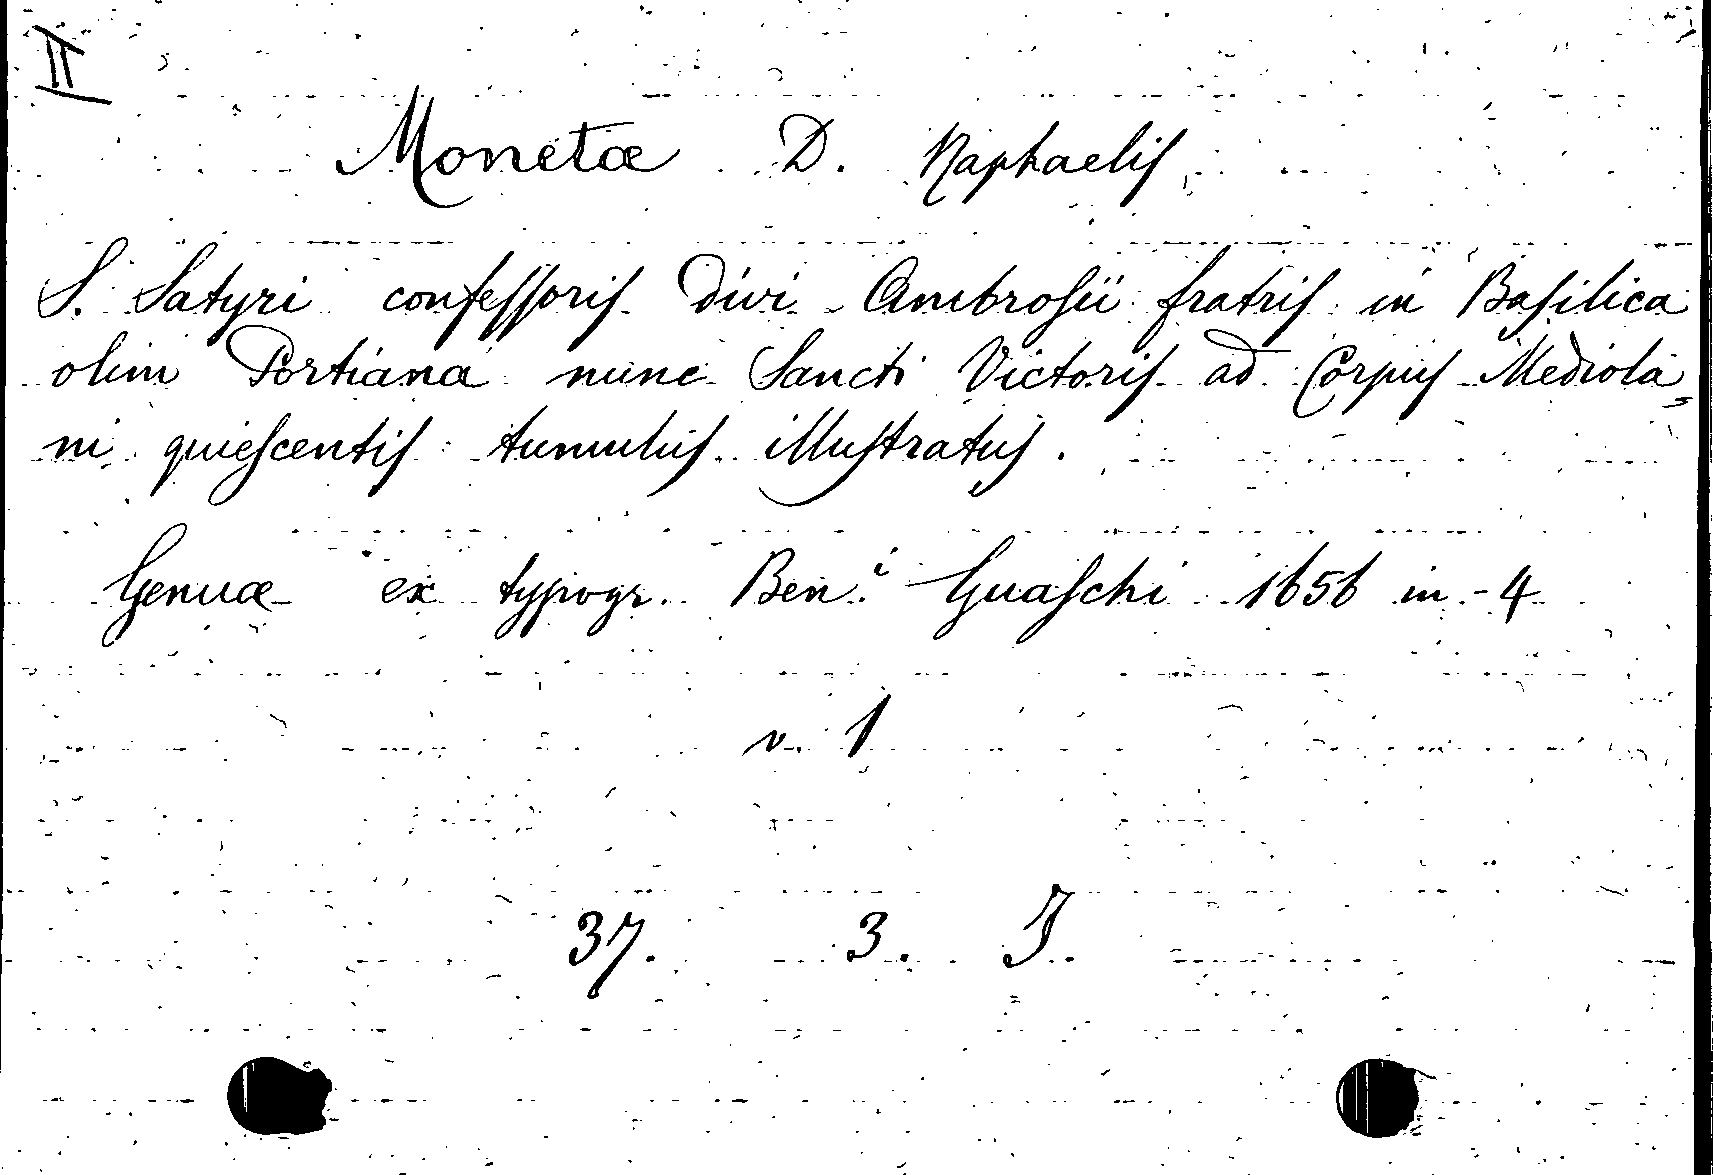 II
Monetæ D. Raphaelis
S. Satyri confessoris Divi Ambrosii fratris in Basilica
olim Portiana nunc Sancti Victoris ad Corpus Mediola„
ni quiescentis tumulus illustratus.
Genuæ ex typogr. Ben.i Guaschi 1656 in-4
v. 1
37. 3. J.